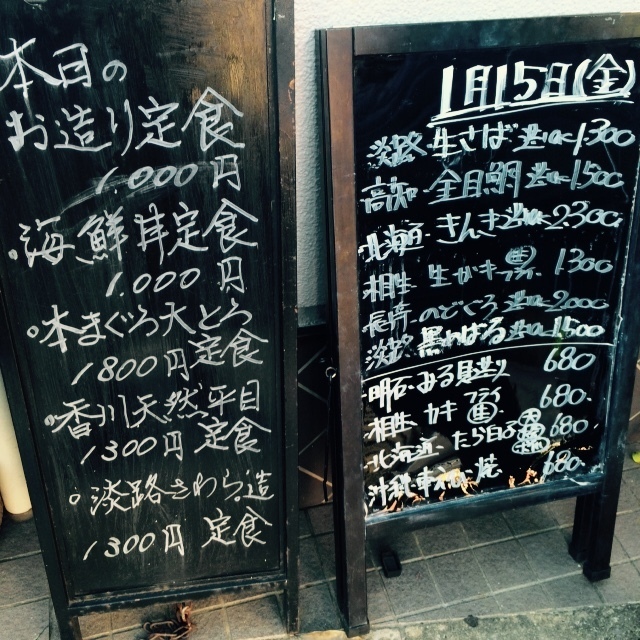 本日の
お造り定食
1.000円
海鮮丼定食
1.000円
本まぐろ大とろ
1800円定食
香川天然平目
1300円定食
淡路さわら造
1300円定食
1月15日(金)
淡路 生さば造りに 1300
高知 金目鯛造りに 1500
北海道 きんき 2300
相生 生かきフライ 1300
長崎 のどぐろ造りに 2000
淡路 黒めばる 1500
明石 みる貝造り 680
相生 カキフライ 680
北海道 たら白子 680
沖縄 焼 680